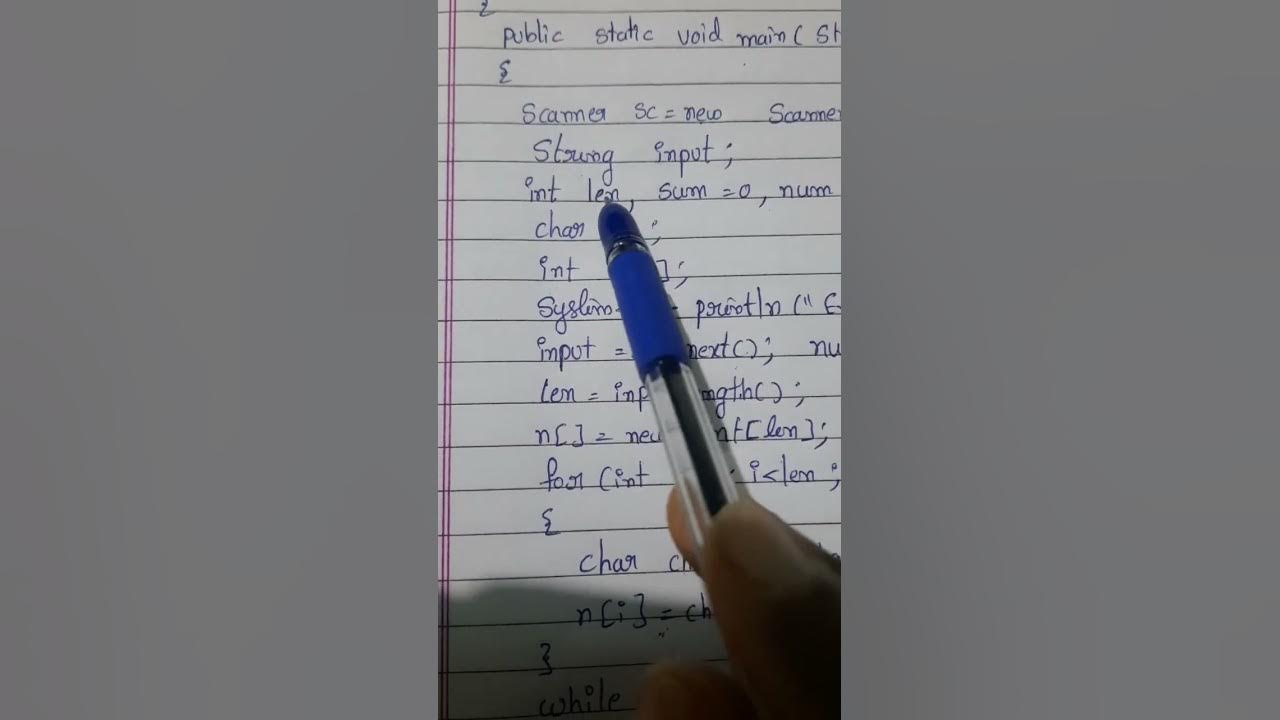 {
public static void main( St
{
Scanner sc = new Scanner
String input ;
int len, sum = 0, num
char ;
int ];
System. println (" E
input = next(); nu
len = inp ngth() ;
n[ ] = new nt[len];
for (int i<len ;
{
char ch
n[i] = ch
}
while